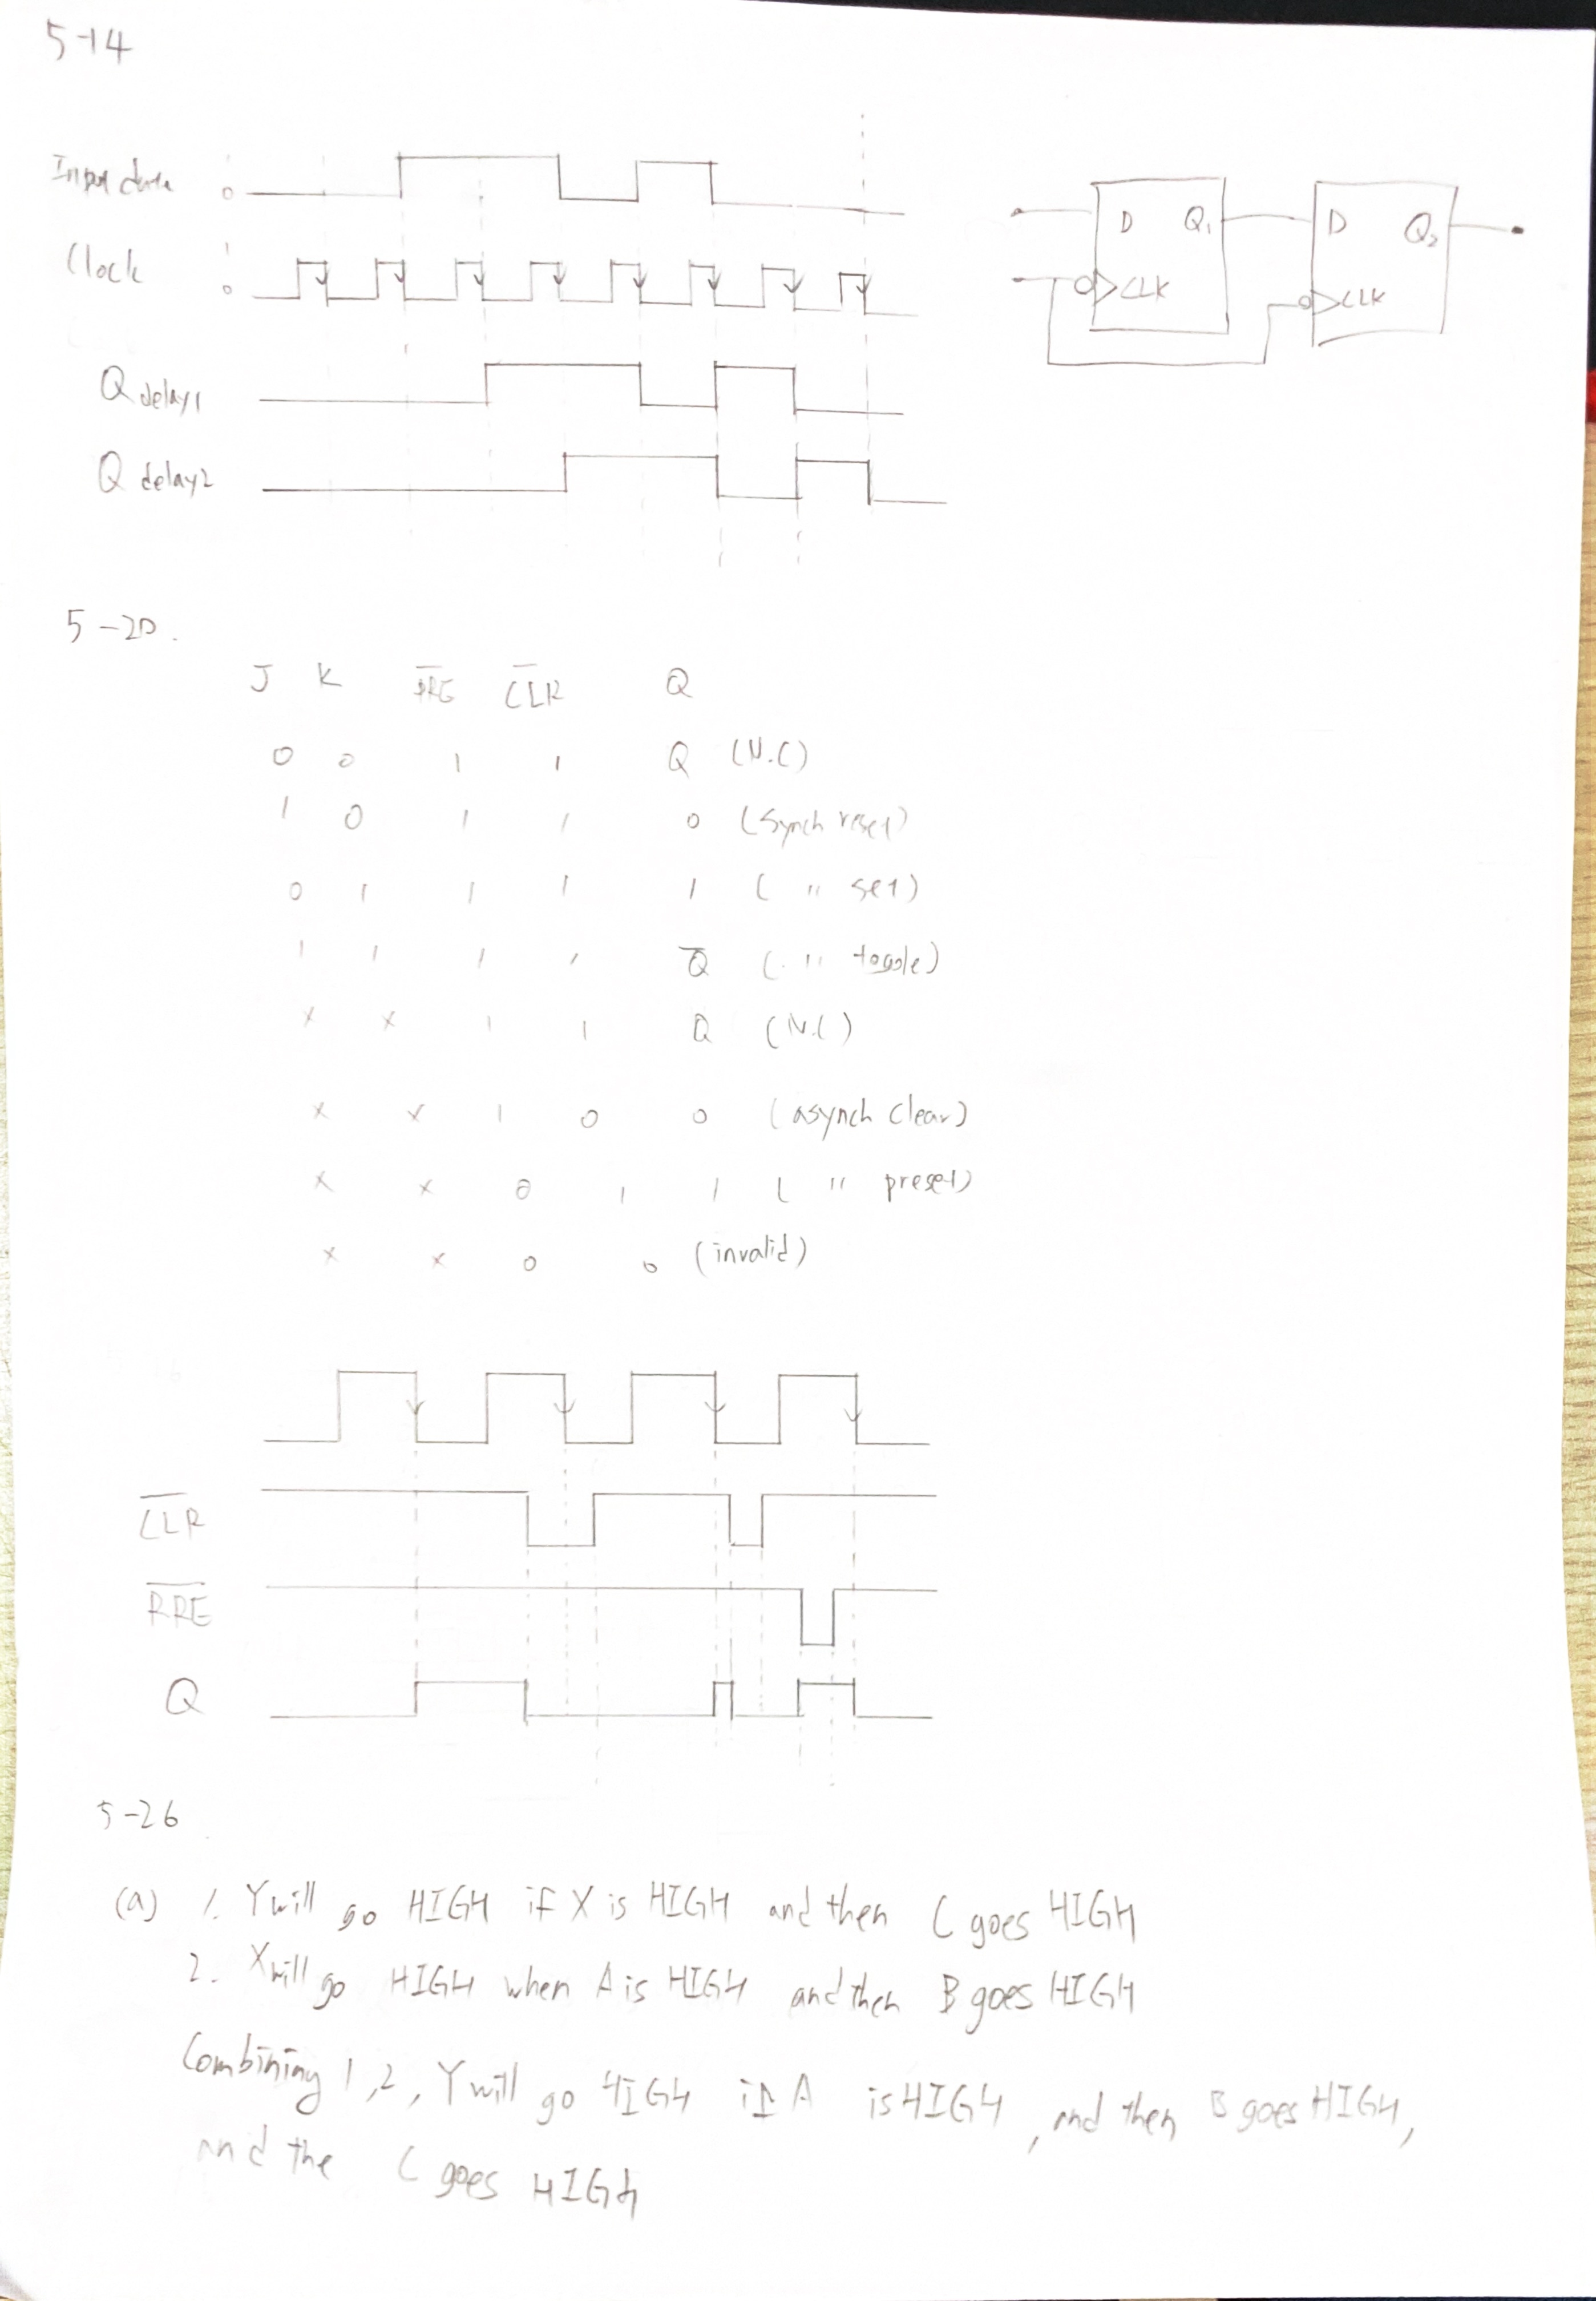 5-14
Input data 0
Clock 1 0
D Q₁ D Q₂
CLK CLK
Q delay1
Q delay2
5-20.
J K P̅R̅E̅ C̅L̅R̅ Q
0 0 1 1 Q (N.C)
1 0 1 1 0 (Synch reset)
0 1 1 1 1 ( " set)
1 1 1 1 Q̅ ( " toggle)
x x 1 1 Q (N.C)
x x 1 0 0 (asynch clear)
x x 0 1 1 ( " preset)
x x 0 0 (invalid)
C̅L̅R̅
P̅R̅E̅
Q
5-26
(a) 1. Y will go HIGH if X is HIGH and then C goes HIGH
2. X will go HIGH when A is HIGH and then B goes HIGH
Combining 1,2, Y will go HIGH if A is HIGH, and then B goes HIGH,
and the C goes HIGH